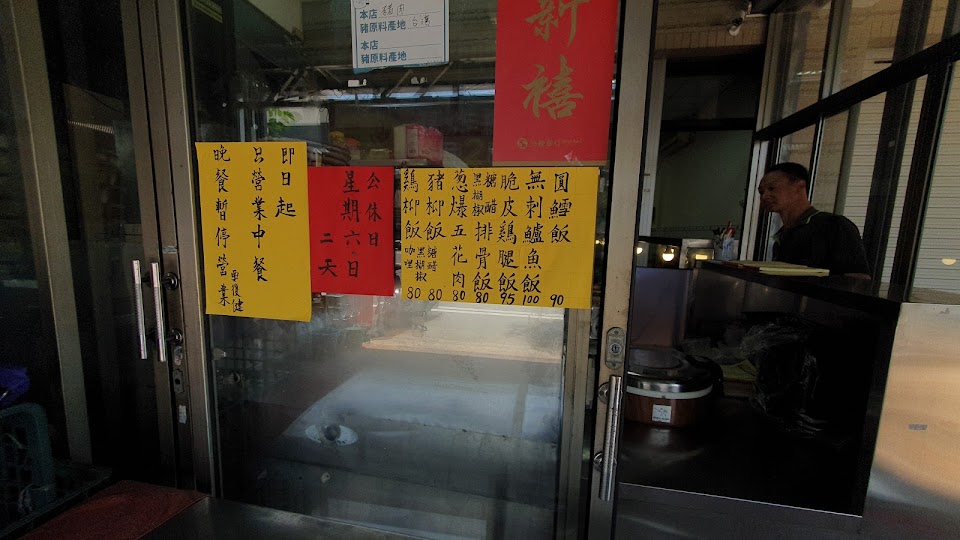 本店 豬肉
豬原料產地 台灣
本店
豬原料產地
新禧
即日起
只營業中餐
晚餐暫停營業
要復健
公休日
星期六.日
二天
圓鱈飯 90
無刺鱸魚飯 100
脆皮鷄腿飯 95
糖醋 黑胡椒 排骨飯 80
葱爆五花肉 80
豬柳飯 糖醋 黑胡椒 80
鷄柳飯 咖哩 80